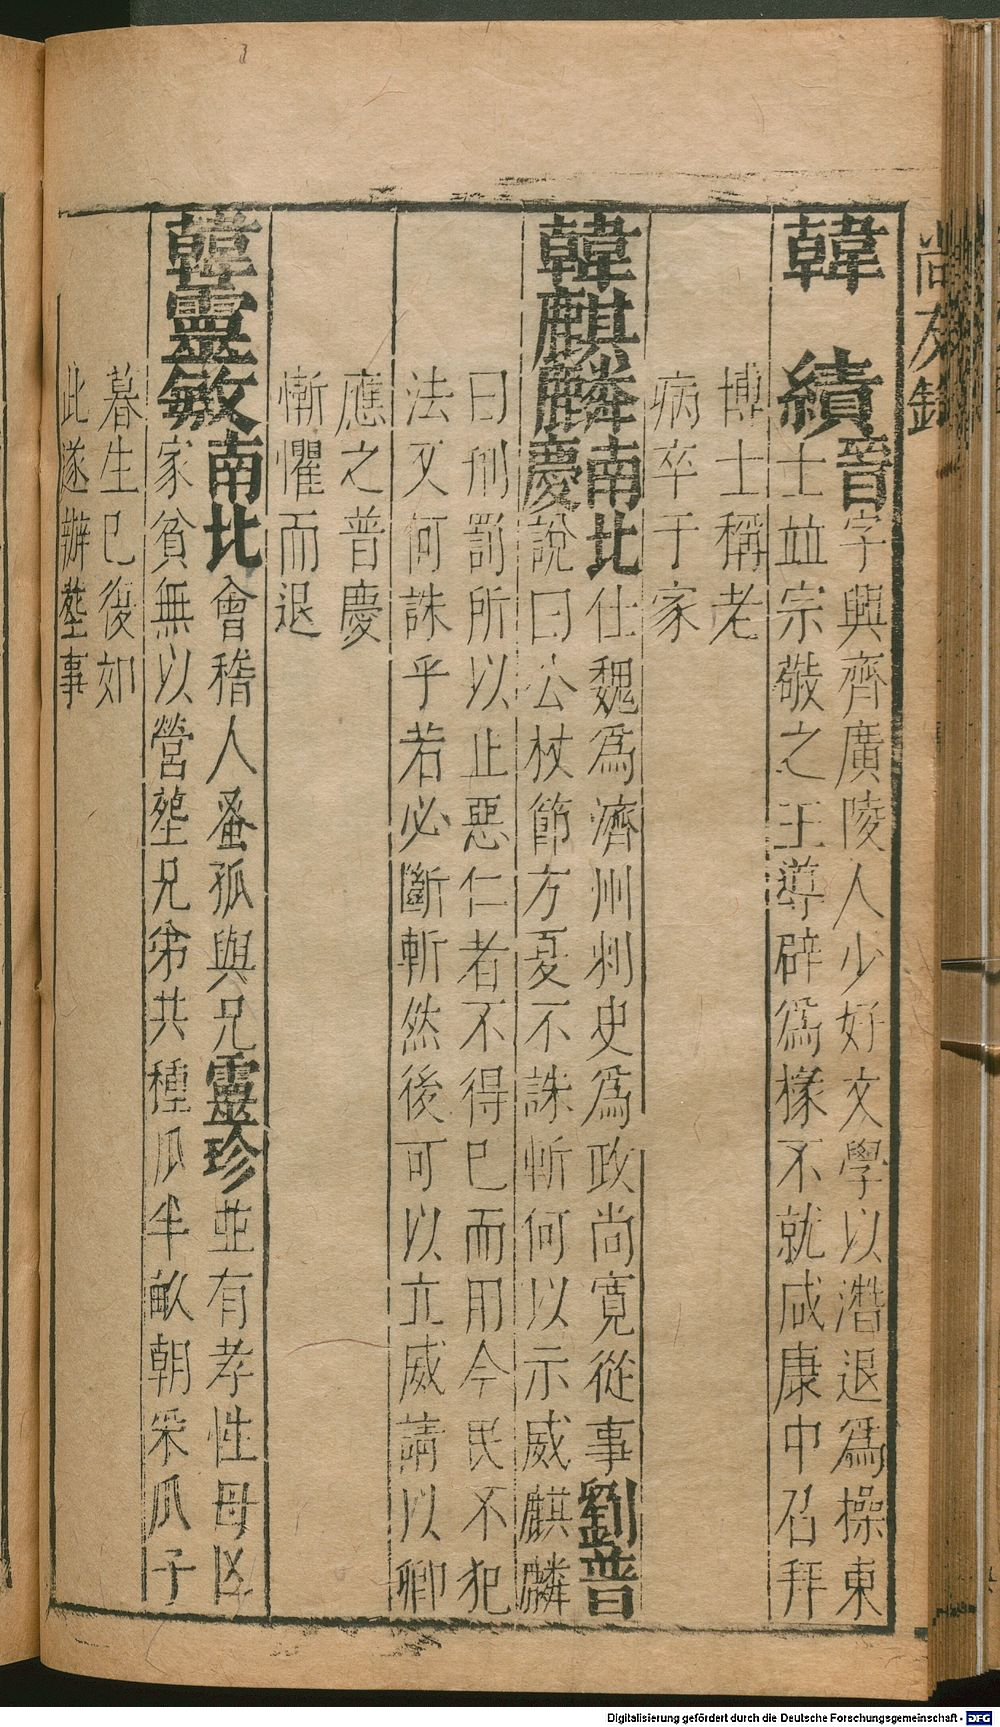 尚友錄
韓績晉字興齊廣陵人少好文學以潛退爲操東
士並宗敬之王導辟爲掾不就咸康中召拜
博士稱老
病卒于家
韓麒麟南北仕魏爲濟州刺史爲政尚寬從事劉普
慶說曰公杖節方夏不誅斬何以示威麒麟
曰刑罰所以止惡仁者不得已而用今民不犯
法又何誅乎若必斷斬然後可以立威請以卿
應之普慶
慚懼而退
韓靈敏南北會稽人蚤孤與兄靈珍並有孝性母凶
家貧無以營塟兄弟共種瓜半畝朝采瓜子
暮生已復如
此遂辦塟事
Digitalisierung gefördert durch die Deutsche Forschungsgemeinschaft - DFG